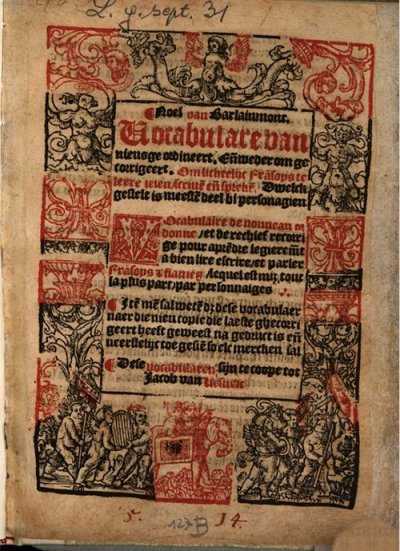 L. g. sept. 31
¶ Noel van Barlaimont.
Vocabulare van
nieuoge ordineert. Eñ weder om ge
corrigeert. Om lichtelijc Frāsoys te
leere lesen scriue eñ sprekē. Dwelck
gestelt is meestē deel bi personagien
Vocabulaire de nouueau or
donne / et de rechief recorri
ge pour aprēdre legieremēt
a bien lire escrire / et parler
Frāsoys & flamēg Acquel est miz tout
la plus part / par personnaiges
¶ Itē mē sal wetē dz dese vocabulaer
naer die nieu copie die laeste ghecorri
geert heeft geweest na gedruct is eñ
neerstelijc toe gesiē so elc mercken sal
¶ Dese vocabularen sijn te coope tot
Jacob van
5. 127 B 14.